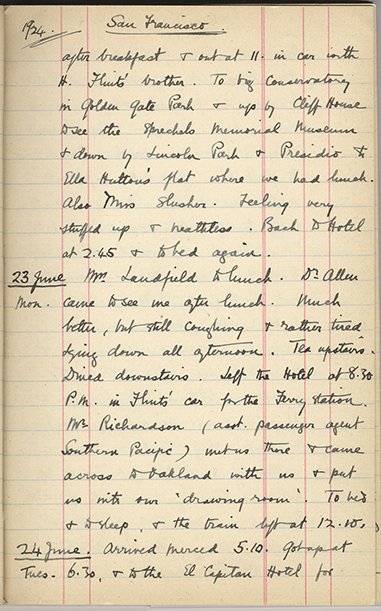 1924. San Francisco.
after breakfast & out at 11. in car with
H. Flint's brother. To big Conservatory
in Golden Gate Park & up by Cliff House
to see the Spreckels Memorial Museum
& down by Lincoln Park & Presidio to
Ella Hutton's flat where we had lunch.
Also Mrs Slusher. Feeling very
stuffed up & breathless. Back to Hotel
at 2.45 & to bed again.
23 June Mrs. Landfield to lunch. Dr. Allen
Mon. came to see me after lunch. Much
better, but still coughing & rather tired
lying down all afternoon. Tea upstairs.
Dined downstairs. Left the Hotel at 8.30
P.M. in Flint's car for the Ferry station.
Mr. Richardson (asst. passenger agent
Southern Pacific) met us there & came
across to Oakland with us & put
us into our "drawing room". To bed
& to sleep, & the train left at 12.10,
24 June. Arrived Merced 5.10. Got up at
Tues. 6.30, & to the El Capitan Hotel for